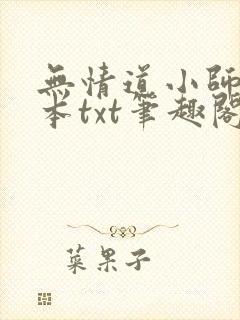 無情道小師
本txt筆趣閣
菜果子